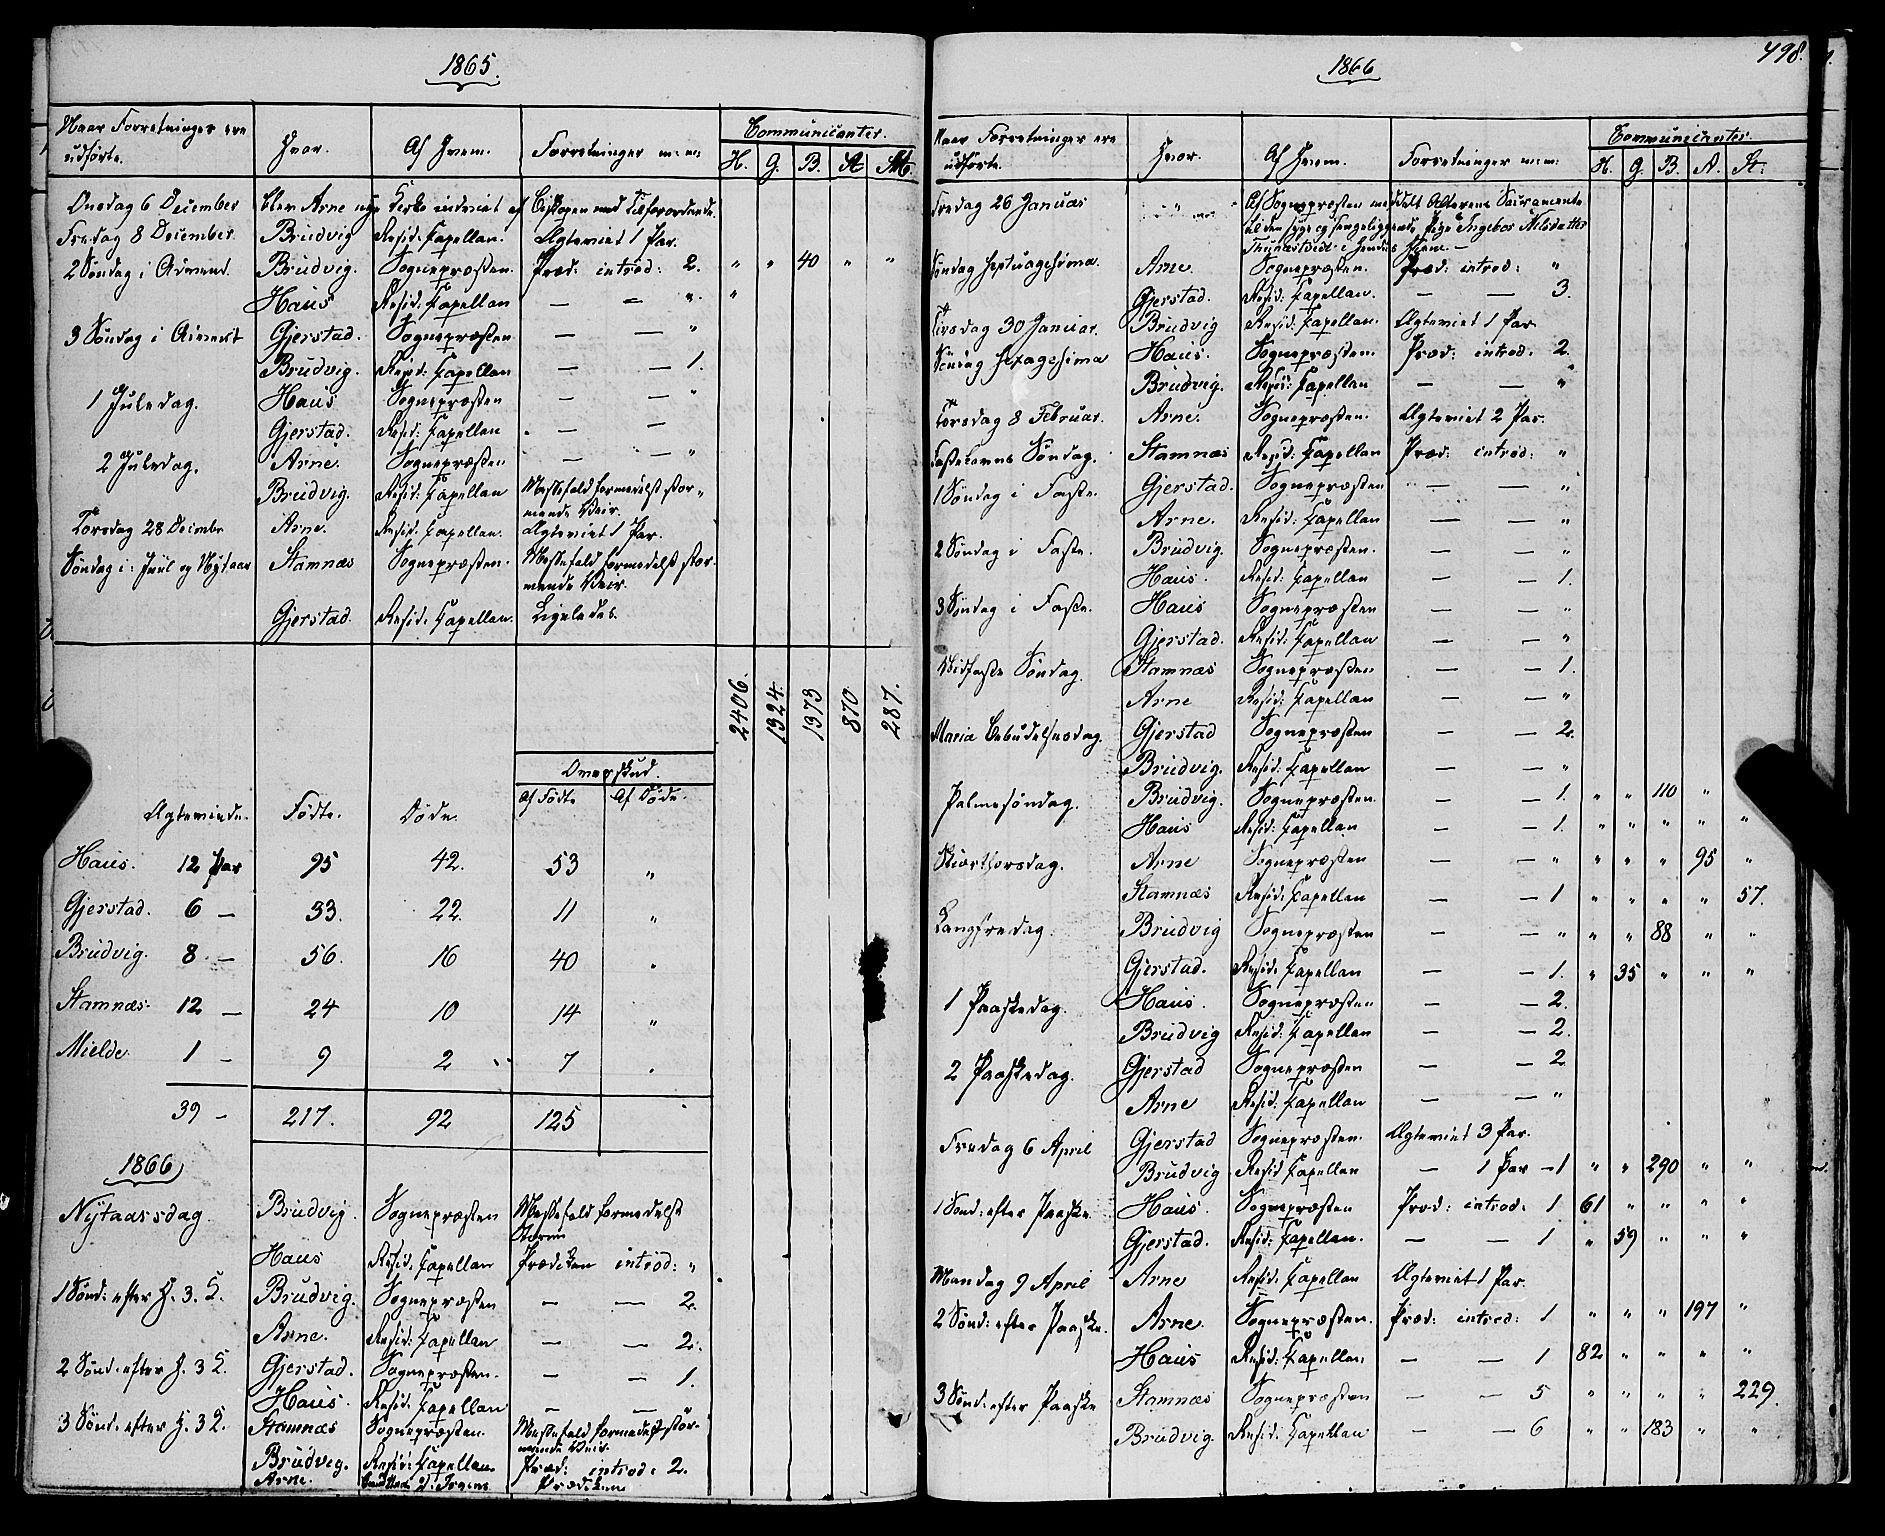 1865.
Naar Forretninger ere udførte. Hvor. Af Hvem. Forretninger m: m: Communicanter.
H. G. B. A St.
Onsdag 6 December blev Arne nye Kirke indviet af Biskopen med Tilforordnede.
Fredag 8 December. Brudvig Resid: Capellan. Ægteviet 1 Par.
2 Søndag i Advent. Brudvig. Sognepræsten. Præd: introd: 2. " " 40 " "
Haus Resid: Capellan — — " "
3 Søndag i Advent Gjerstad. Sognepræsten — — "
Brudvig. Resid: Capellan — — 1.
1 Juledag. Haus Sognepræsten — — "
Gjerstad. Resid: Capellan — —
2 Juledag. Arne. Sognepræsten — — "
Brudvig. Resid: Capellan Messefald formedelst stor-
mende Veir.
Torsdag 28 Decembr Arne. Resid: Capellan. Ægteviet 1 Par.
Søndag i: Juul og Nytaar Stamnæs Sognepræsten. Messefald formedelst stor-
mende Veir.
Gjerstad. Resid: Capellan. Ligeledes.
2406. 1324. 1373 870 287.
Overskud.
Ægteviede. Fødte. Døde. Af Fødte Af Døde.
Haus. 12 Par 95 42. 53 "
Gjerstad. 6 — 33. 22. 11 "
Brudvig. 8 — 56. 16 40 "
Stamnæs. 12 — 24 10 14 "
Mielde. 1 — 9 2 7 "
39 — 217. 92 125
1866
Nytaarsdag. Brudvig. Sognepræsten Messefald formedelst
Storm
Haus Resid: Capellan Prædiken introd: "
1 Sønd: efter H. 3. K. Brudvig. Sognepræsten — — 2.
Arne. Resid: Capellan — — 2.
2 Sønd: efter H. 3 K. Gjerstad. Sognepræsten. — — 1.
Haus. Resid: Capellan — — "
3 Sønd: efter H. 3 K. Stamnæs Sognepræsten. Messefald formedelst stor-
mende Veir.
Brudvig. Resid: Capellan. Præd: introd: 2.
Arne. Prædiken
1866
498.
Naar Forretninger ere udførte. Hvor. Af Hvem. Forretninger m: m: Communicanter.
H. G. B. A. St.
Fredag 26 Januar " Af Sognepræsten meddelt Alterens Sacramente
til den syge og sengeliggende Pige Ingebor Nilsdatter
i hendes Hjem. —
Søndag Septuagesima. Arne. Sognepræsten. Præd: introd: "
Gjerstad. Resid: Capellan. — — 3.
Tirsdag 30 Januar. Brudvig Resid: Capellan. Ægteviet 1 Par
Søndag Sexagesima Haus. Sognepræsten. Præd: introd: 2.
Brudvig. Resid: Capellan — — "
Torsdag 8 Februar. Arne. Sognepræsten. Ægteviet 2 Par.
Fastelavns Søndag. Stamnæs Resid: Capellan Præd: introd: "
1 Søndag i Faste. Gjerstad. Sognepræsten — — "
Arne. Resid: Capellan — — "
2 Søndag i Faste. Brudvig. Sognepræsten. — — "
Haus. Resid: Capellan — — 1.
3 Søndag i Faste. Haus Sognepræsten — — "
Gjerstad. Resid: Capellan — — "
Midfaste Søndag. Stamnæs Sognepræsten — — 1.
Arne Resid: Capellan — — "
Maria Bebudelsesdag. Gjerstad Sognepræsten — — 2.
Brudvig. Resid: Capellan — — "
Palmesøndag. Brudvig. Sognepræsten. — — 1. " " 110 "
Haus Resid: Capellan — — 1. " " " " "
Skiærthorsdag. Arne Sognepræsten — — " " " " 95 "
Stamnæs Resid: Capellan — — 1 " " " " 57.
Langfredag. Brudvig Sognepræsten — — " " " 88 " "
Gjerstad. Resid: Capellan — — 1. " 35 " " "
1 Paaskedag. Haus. Sognepræsten — — 2.
Brudvig Resid: Capellan — — 2.
2 Paaskedag. Gjerstad Sognepræsten — — 2
Arne Resid: Capellan — — "
Fredag 6 April Gjerstad Sognepræsten. Ægteviet 3 Par.
Brudvig Resid: Capellan — 1 Par — 1 " " 290 " "
1 Sønd: efter Paaske Haus. Sognepræsten Præd: introd: 1 61 " " " "
Gjerstad. Resid: Capellan. — — 1 " 59 " " "
Mandag 9 April Arne Resid: Capellan Ægteviet 1 Par.
2 Sønd: efter Paaske. Arne. Sognepræsten. Præd: introd: 1 " " " 197 "
Haus Resid: Capellan. — — 1 82 " " " "
3 Sønd: efter Paaske Stamnæs Sognepræsten — — 5 " " " " 229.
Brudvig. Resid: Capellan — — 6 " " 183 " "